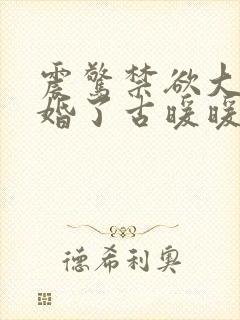 震惊禁欲大
婚了古暖暖
德希利奥